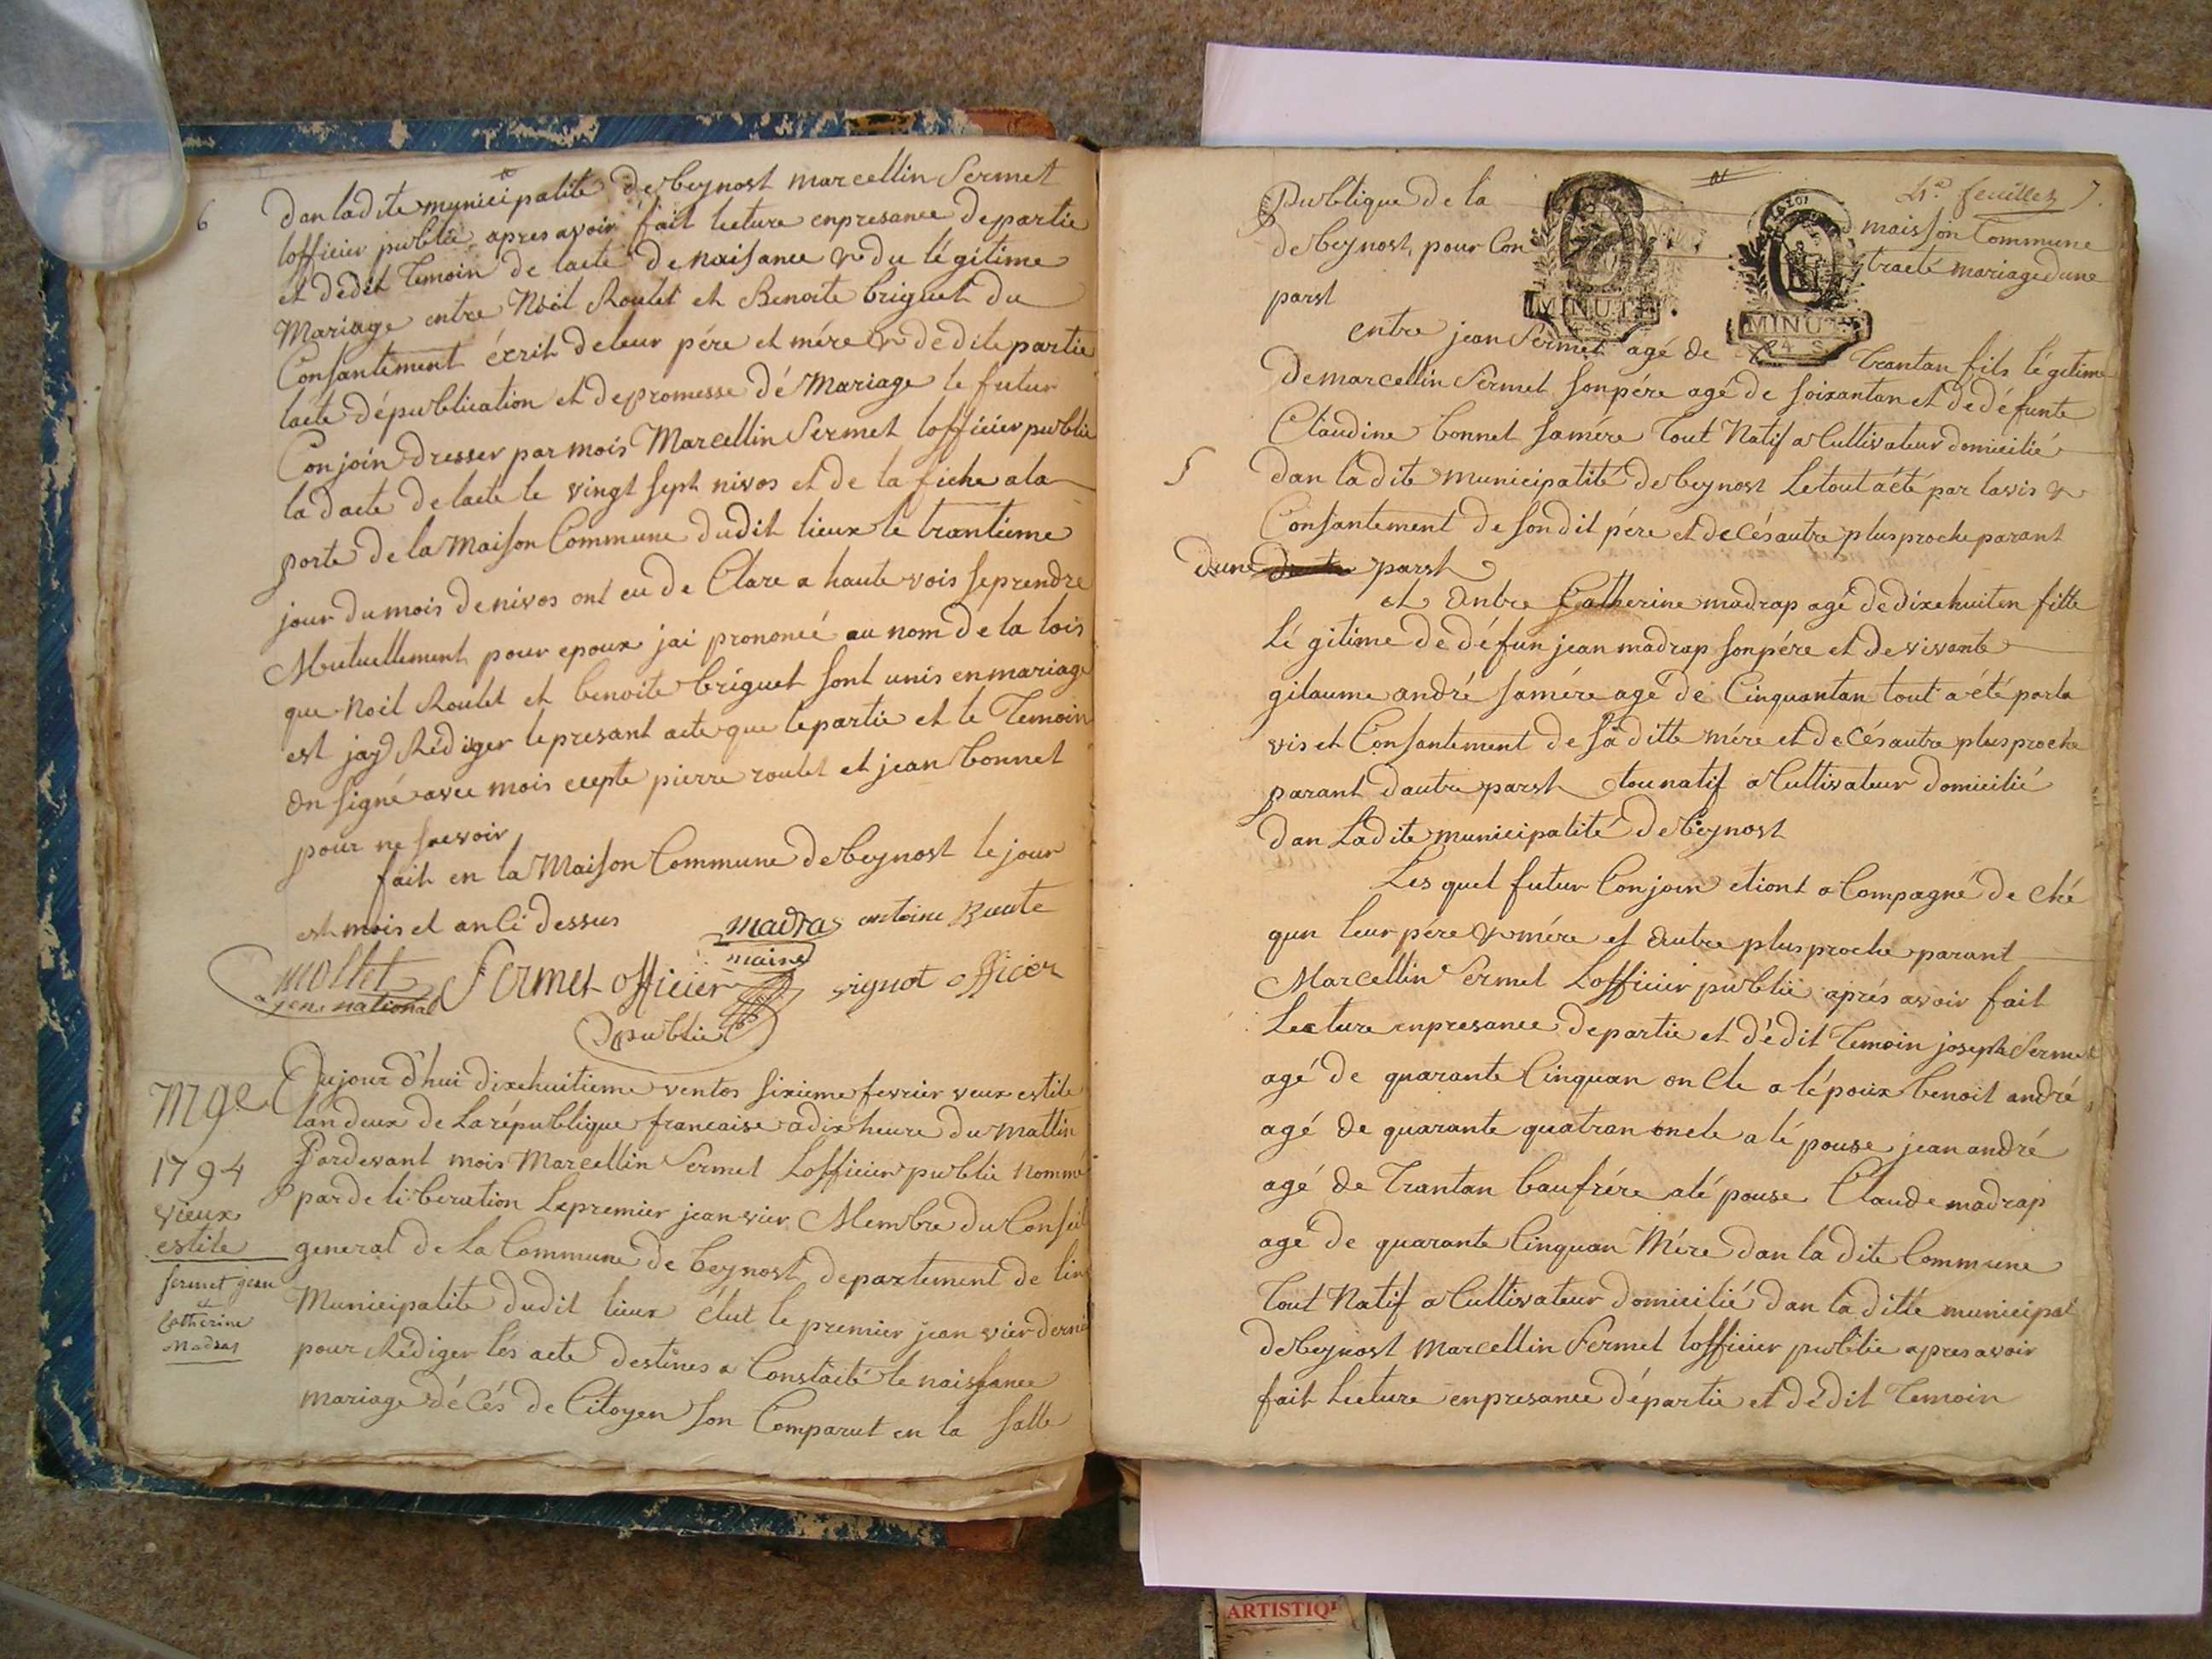 6
dan ladite municipalité de beynost marcellin Sermet
lofficier public apres avoir fait lecture enpresance departie
et dedit Temoin de lacte de naisance & du légitime
Mariage entre Noil Roulet et Benoite briguet du
Consantement éxrit deleur pére et mére & dedite partie
lacte dépublication et depromesse dé Mariage le futur
Conjoin dresser par mois Marcellin Sermet lofficier public
la dacte delacte le vingt sept nivos et de la fiche ala
porte de la Maison Commune dudit lieux le trantieme
jour du mois de nivos ont eu de Clare a haute vois seprendre
Mutuellement pour epoux jai prononcé au nom de la lois
que Noil Roulet et benoite briguet sont unis enmariage
est jay Rédiger lepresant acte que lepartie et le Temoin
on signé avec mois ecepte pierre roulet et jean bonnet
pour ne scevoir
fait en la Maison Commune de beynost le jour
est mois et an Ci dessus
madras antoine
maire
mollet Sermet officier officier
agent national
public
Mge
1794
vieux
estile
sermet jean
et
Catherine
Madras
Aujour d'hui dixehuitieme ventos sixieme fevrier veux estile
lan deux de La république francaise a dix heure du mattin
Pardevant mois Marcellin Sermet Lofficier public nommé
par de liberation Lepremier jeanvier Membre du Conseil
general de La Commune de beynost departement de lin
Municipalite dudit lieux élut le premier jean vier dernié
pour Rédiger lés acte destines a Constaité le naissance
mariage décés de Citoyen son Comparut en la salle
4e. feuillet 7.
Publique de la maisson Commune
de beynost, pour Contracté mariage dune
parst
MINUTE
MINUTE
4 S.
entre jean Sermet agé de Trantan fils légitime
de marcellin Sermet sonpére agé de soixantan et dedéfunte
Claudine bonnet samére tout Natif a Cultivateur domicilié
5
dan ladite municipatité de beynost Letout a été par lavis &
Consantement de sondit pére et de césautre plusproche parant
dune parst
et dutre Catherine madrap agé dedixehuiten fille
Légitime de défun jean madrap sonpére et de vivante
gilaume andré samére agé de Cinquantan tout a été parla
vis et Consantement de sa ditte mére et de césautre plusproche
parant dautre parst tounatif a Cultivateur domicilié
dan Ladite municipalité de beynost
Les quel futur Conjoin etiont a Compagné de ché
qun leur pére & mére et dautre plusproche parant
Marcellin Sermet Lofficier public aprés avoir fait
Lecture enpresance departie et dédit Temoin joseph Sermet
agé de quarante Cinquan on Cle a lépoux benoit andré
agé de quarante quatran oncle a lé pouse jean andré
agé de Trantan baufrére alé pouse Claude madrap
agé de quarante Cinquan Mére dan ladite Commune
Tout Natif a Cultivateur domicilié dan la ditte municipal
de beynost Marcellin Sermet lofficier public apres avoir
fait Lecture enpresance départie et dédit Temoin
ARTISTIQ